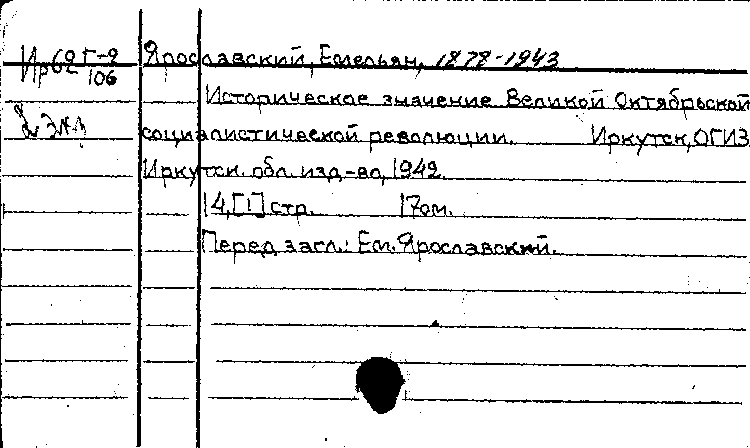 Ир62 Г-2
106
2 экз
Ярославский, Емельян, 1878-1943
Историческое значение Великой Октябрьской
социалистической революции. Иркутск, ОГИЗ
Иркутск. обл. изд-во, 1942.
14,[1] стр. 17см.
Перед загл.: Ем. Ярославский.